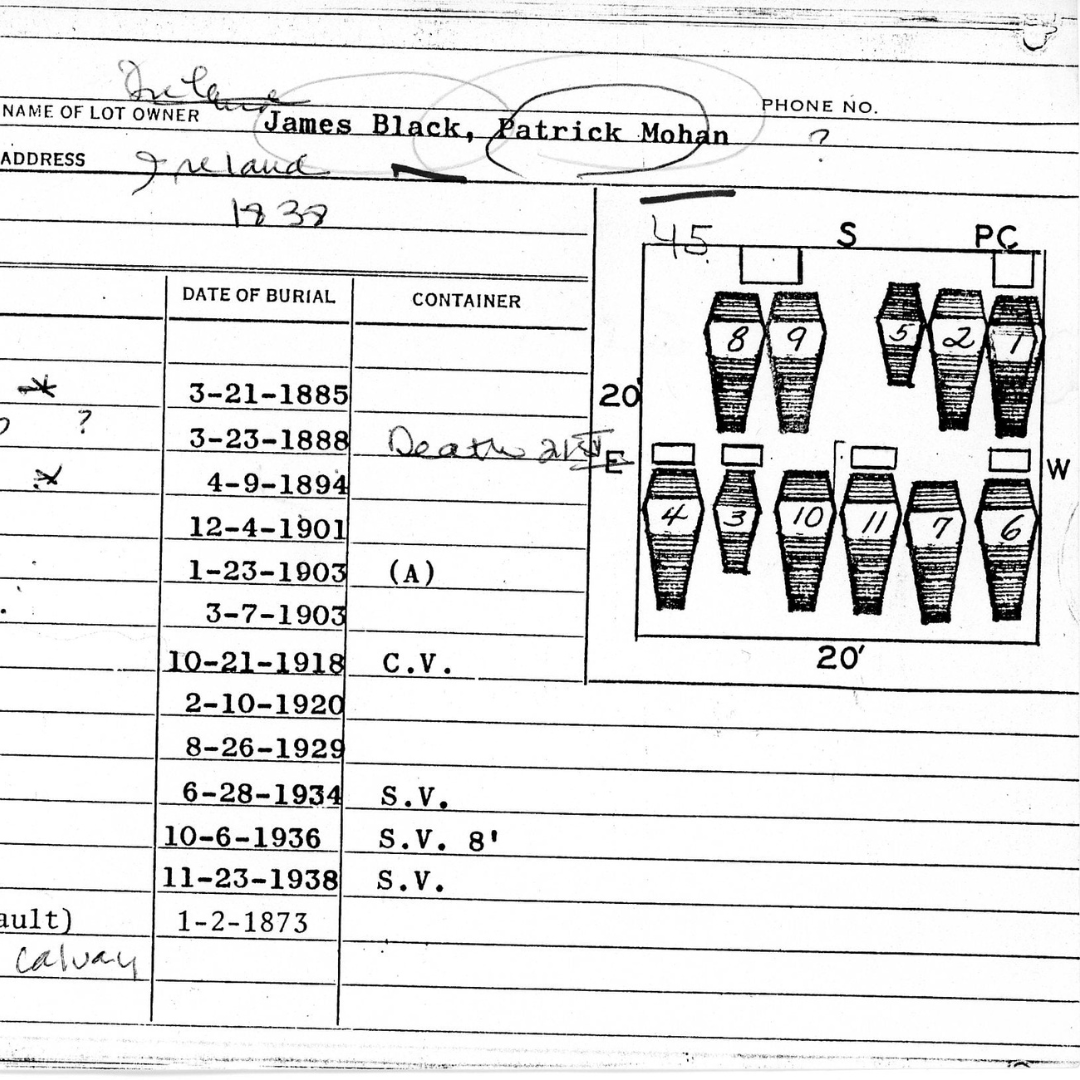 Ireland
NAME OF LOT OWNER James Black, Patrick Mohan PHONE NO.
ADDRESS Ireland ?
1838
45 S PC
DATE OF BURIAL CONTAINER
8 9 5 2 1
3-21-1885
20'
? 3-23-1888 Death 21st
E W
4-9-1894
4 3 10 11 7 6
12-4-1901
1-23-1903 (A)
3-7-1903
10-21-1918 C.V.
20'
2-10-1920
8-26-1929
6-28-1934 S.V.
10-6-1936 S.V. 8'
11-23-1938 S.V.
ault) 1-2-1873
Calvary